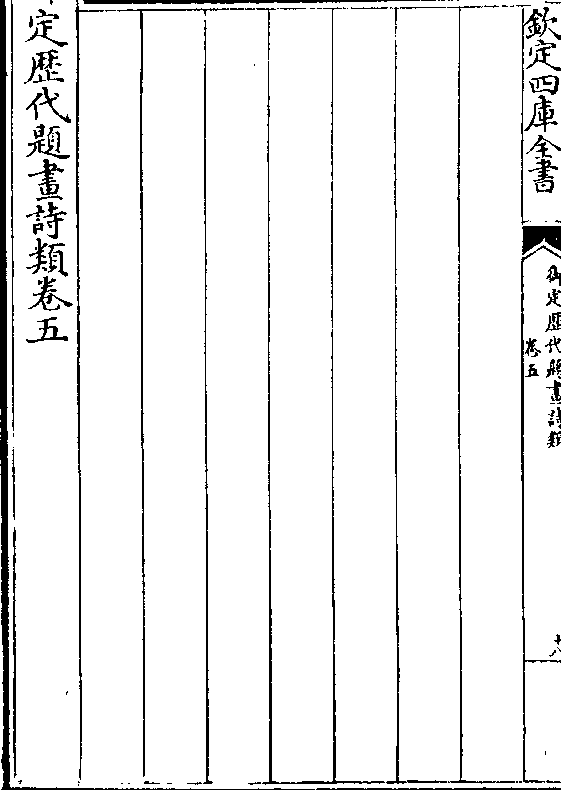 欽定四庫全書
御定歴代題畫詩類
卷五
十八
定歴代題畫詩類卷五